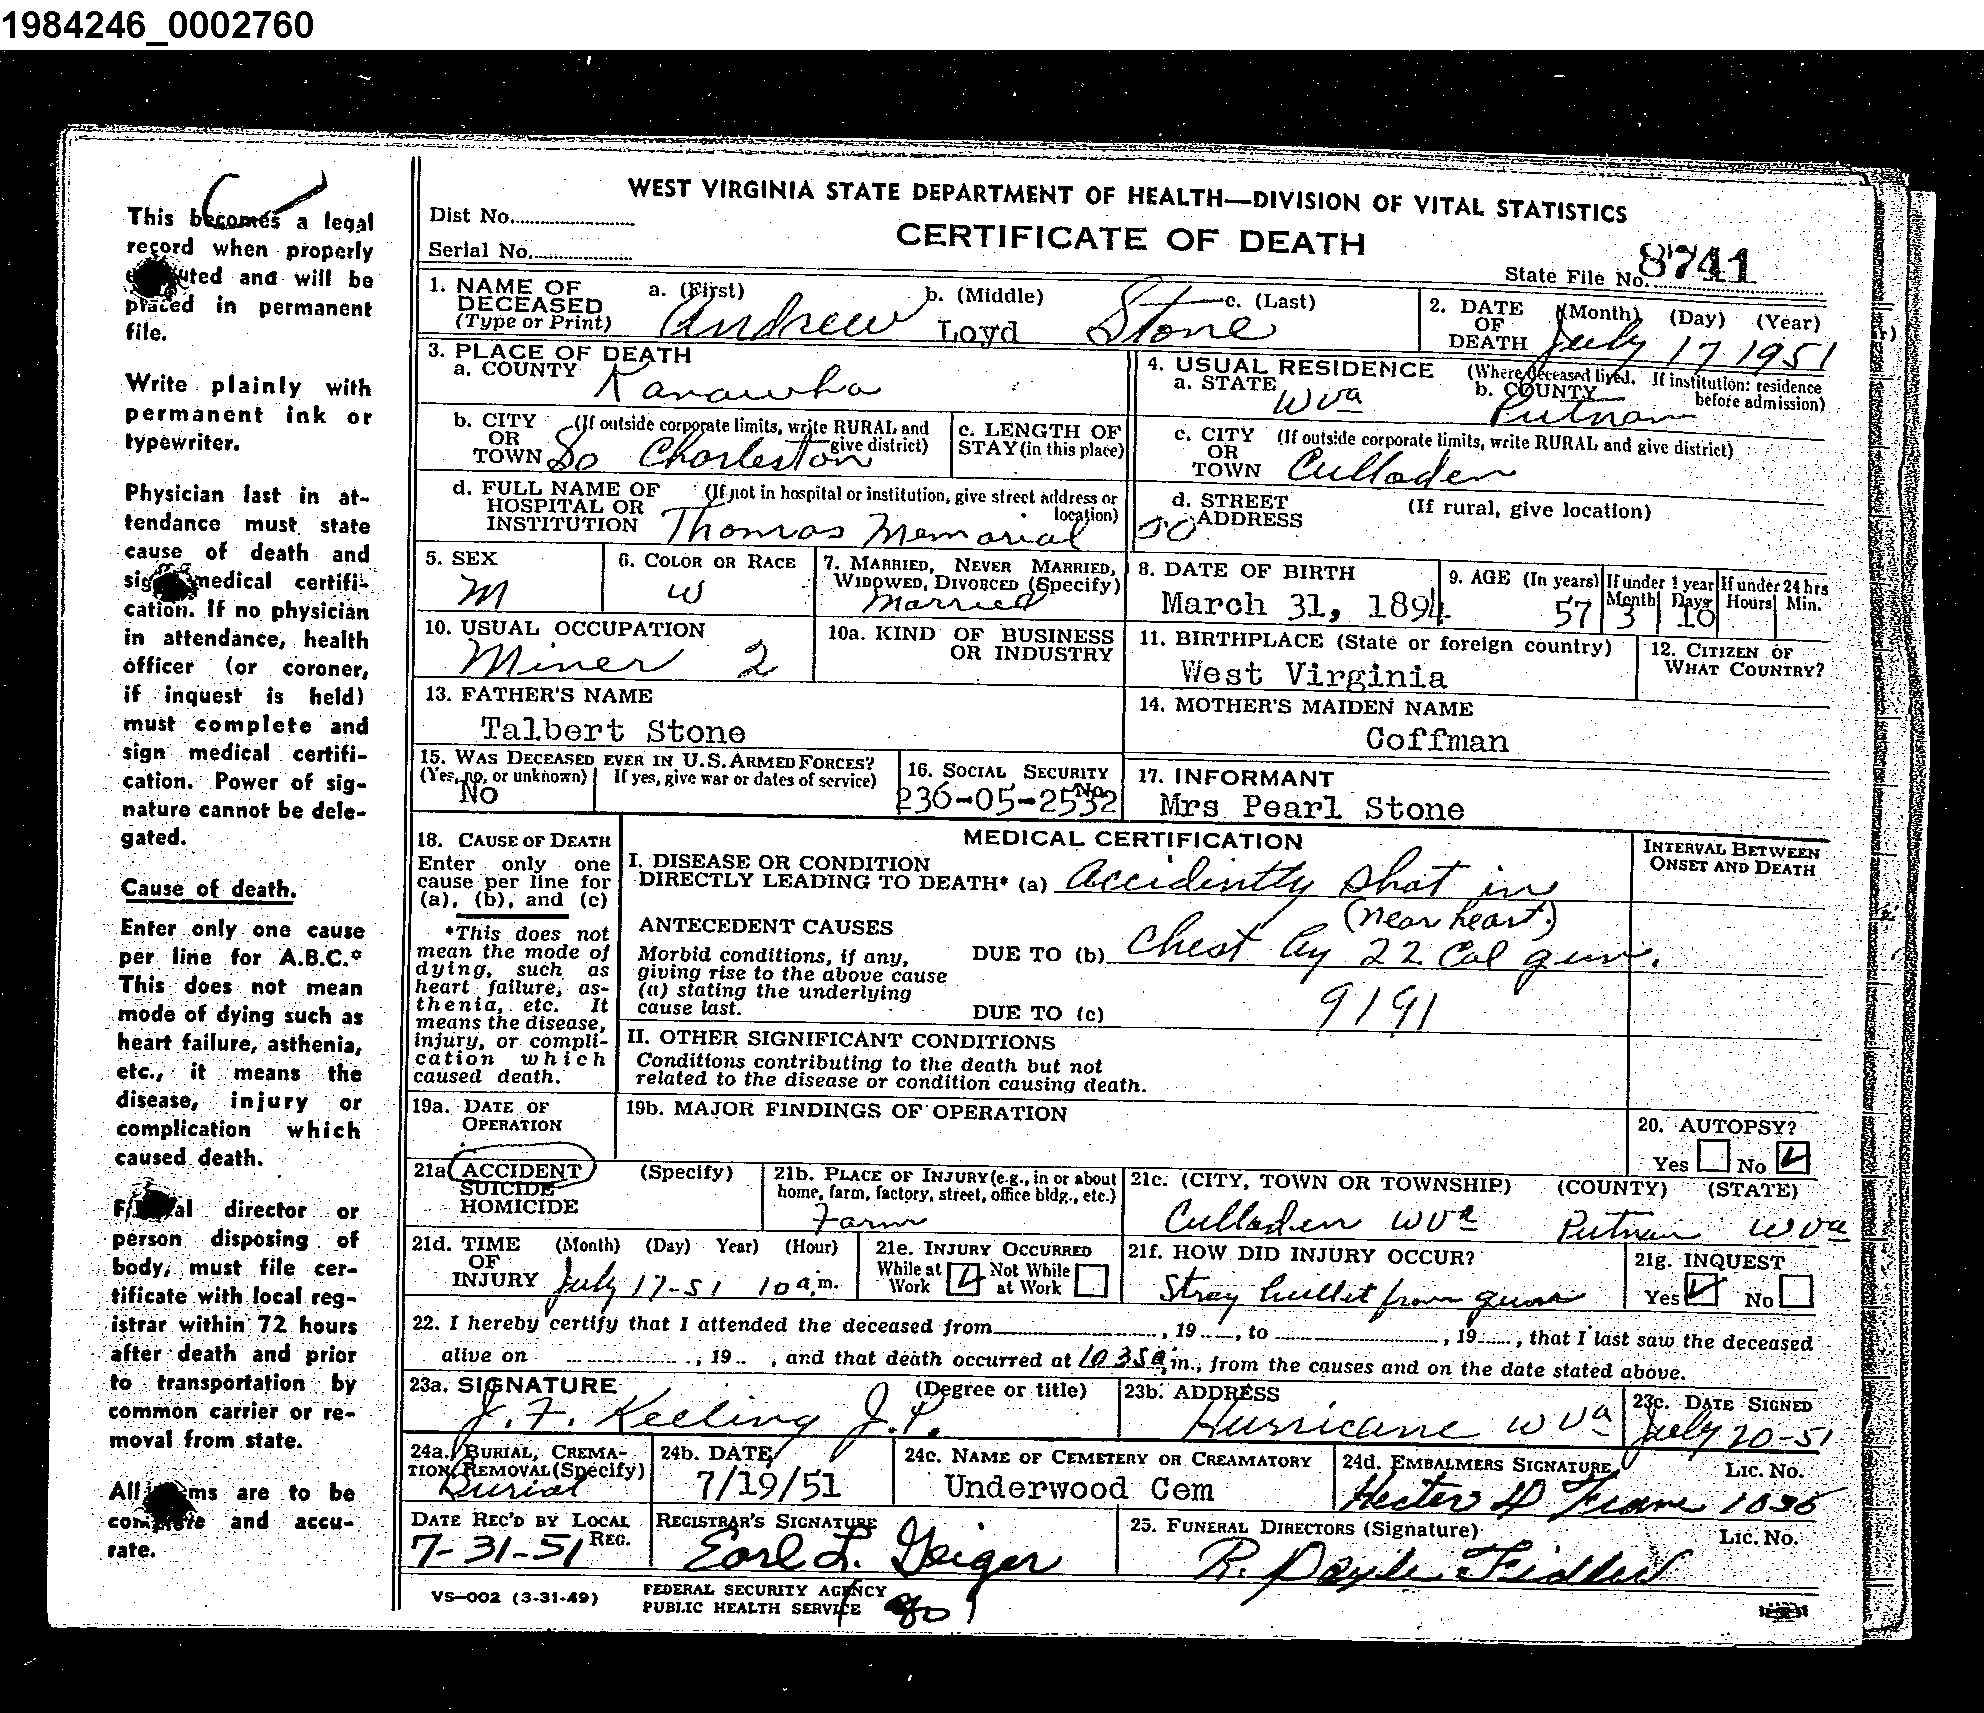 1984246_0002760
This becomes a legal
record when properly
executed and will be
placed in permanent
file.
Write plainly with
permanent ink or
typewriter.
Physician last in at-
tendance must state
cause of death and
sign medical certifi-
cation. If no physician
in attendance, health
officer (or coroner,
if inquest is held)
must complete and
sign medical certifi-
cation. Power of sig-
nature cannot be dele-
gated.
Cause of death.
Enter only one cause
per line for A.B.C.*
This does not mean
mode of dying such as
heart failure, asthenia,
etc., it means the
disease, injury or
complication which
caused death.
Funeral director or
person disposing of
body, must file cer-
tificate with local reg-
istrar within 72 hours
after death and prior
to transportation by
common carrier or re-
moval from state.
All items are to be
complete and accu-
rate.
WEST VIRGINIA STATE DEPARTMENT OF HEALTH—DIVISION OF VITAL STATISTICS
Dist No.
CERTIFICATE OF DEATH
Serial No.
State File No. 8741
1. NAME OF DECEASED (Type or Print) a. (First) Andrew b. (Middle) Loyd c. (Last) Stone
2. DATE OF DEATH (Month) (Day) (Year) July 17 1951
3. PLACE OF DEATH
a. COUNTY Kanawha
4. USUAL RESIDENCE (Where deceased lived. If institution: residence before admission)
a. STATE WVa b. COUNTY Putnam
b. CITY OR TOWN (If outside corporate limits, write RURAL and give district) So Charleston
c. LENGTH OF STAY (in this place)
c. CITY OR TOWN (If outside corporate limits, write RURAL and give district) Culloden
d. FULL NAME OF HOSPITAL OR INSTITUTION (If not in hospital or institution, give street address or location) Thomas Memorial
d. STREET ADDRESS (If rural, give location)
5. SEX M
6. COLOR OR RACE W
7. MARRIED, NEVER MARRIED, WIDOWED, DIVORCED (Specify) Married
8. DATE OF BIRTH March 31, 1894
9. AGE (In years) 57 If under 1 year Month 3 Days 16 If under 24 hrs Hours Min.
10. USUAL OCCUPATION Miner 2
10a. KIND OF BUSINESS OR INDUSTRY
11. BIRTHPLACE (State or foreign country) West Virginia
12. CITIZEN OF WHAT COUNTRY?
13. FATHER'S NAME
Talbert Stone
14. MOTHER'S MAIDEN NAME
Coffman
15. WAS DECEASED EVER IN U.S. ARMED FORCES?
(Yes, no, or unknown) If yes, give war or dates of service)
No
16. SOCIAL SECURITY No.
236-05-2532
17. INFORMANT
Mrs Pearl Stone
18. CAUSE OF DEATH
Enter only one
cause per line for
(a), (b), and (c)
*This does not
mean the mode of
dying, such as
heart failure, as-
thenia, etc. It
means the disease,
injury, or compli-
cation which
caused death.
MEDICAL CERTIFICATION
INTERVAL BETWEEN
ONSET AND DEATH
I. DISEASE OR CONDITION
DIRECTLY LEADING TO DEATH* (a) Accidintly shot in
(near heart.)
ANTECEDENT CAUSES
Morbid conditions, if any,
giving rise to the above cause
(a) stating the underlying
cause last.
DUE TO (b) Chest by 22 Cal gun.
DUE TO (c) 9191
II. OTHER SIGNIFICANT CONDITIONS
Conditions contributing to the death but not
related to the disease or condition causing death.
19a. DATE OF OPERATION
19b. MAJOR FINDINGS OF OPERATION
20. AUTOPSY?
Yes No
21a. ACCIDENT (Specify)
SUICIDE
HOMICIDE
21b. PLACE OF INJURY (e.g., in or about home, farm, factory, street, office bldg., etc.)
Farm
21c. (CITY, TOWN OR TOWNSHIP) (COUNTY) (STATE)
Culloden WVa Putnam WVa
21d. TIME OF INJURY (Month) (Day) Year) (Hour)
July 17-51 10 a.m.
21e. INJURY OCCURRED
While at Work Not While at Work
21f. HOW DID INJURY OCCUR?
Stray bullet from gun
21g. INQUEST
Yes No
22. I hereby certify that I attended the deceased from , 19 , to , 19 , that I last saw the deceased
alive on , 19 , and that death occurred at 10 35 a m., from the causes and on the date stated above.
23a. SIGNATURE (Degree or title)
J. F. Keeling J.P.
23b. ADDRESS
Hurricane WVa
23c. DATE SIGNED
July 20-51
24a. BURIAL, CREMA-
TION, REMOVAL (Specify)
Burial
24b. DATE
7/19/51
24c. NAME OF CEMETERY OR CREAMATORY
Underwood Cem
24d. EMBALMERS SIGNATURE Lic. No.
DATE REC'D BY LOCAL REG.
7-31-51
REGISTRAR'S SIGNATURE
Earl L. Geiger
25. FUNERAL DIRECTORS (Signature) Lic. No.
R. Doyle Fidler
VS-002 (3-31-49)
FEDERAL SECURITY AGENCY
PUBLIC HEALTH SERVICE